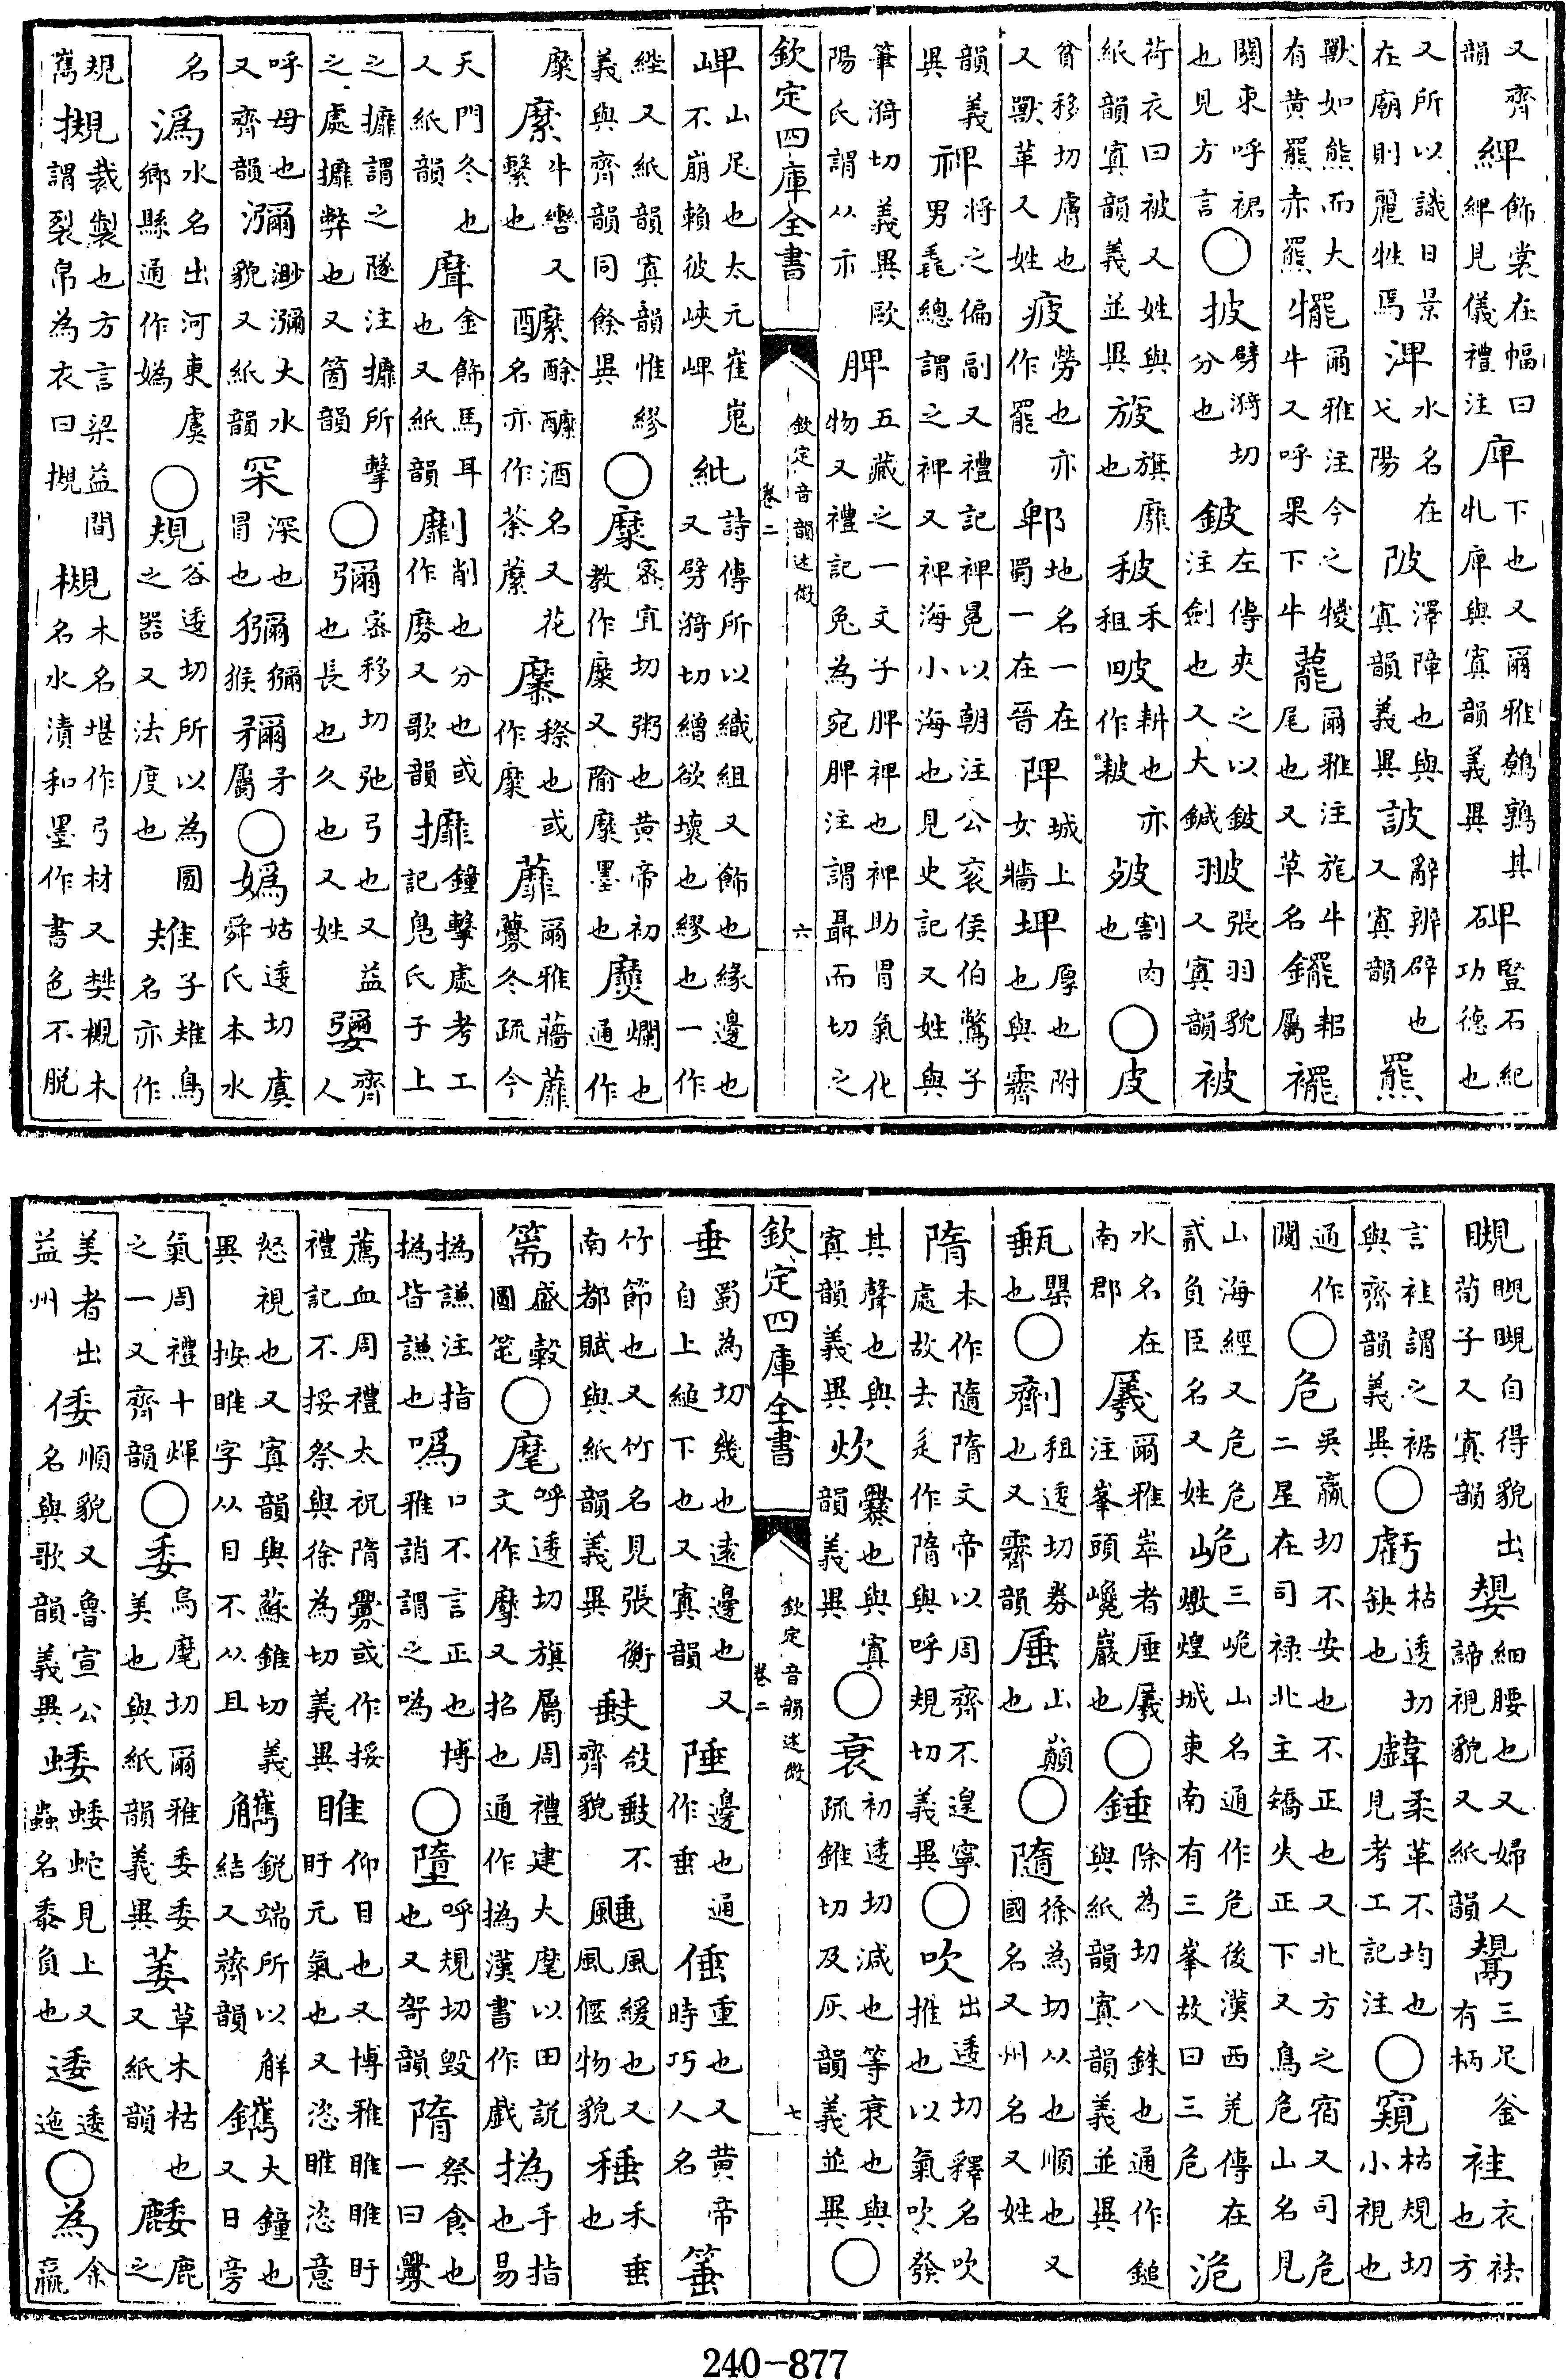 又齊韻綼飾裳在幅曰綼見儀禮注庳下也又爾雅鵪鶉其牝庳與寘韻義異碑豎石紀功德也
又所以識日景在廟則麗牲焉渒水名在弋陽陂澤障也與寘韻義異詖辭辨辟也又寘韻羆
獸如熊而大有黄羆赤羆犤牛爾雅注今之㹌牛又呼果下牛䕗爾雅注旄牛尾也又草名鑼耜屬襬
關東呼裙也見方言○披劈漪切分也鈹左傳夾之以鈹注劍也又大鍼翍張羽貌又寘韻被
荷衣曰被又姓與紙韻寘韻義並異旇旗靡也秛禾租㿱耕也亦作耚㱟割肉也○皮
貧移切膚也又獸革又姓疲勞也亦作罷郫地名一在蜀一在晉陴城上女牆埤厚也附也與霽
韻義異裨將之偏副又禮記裨冕以朝注公衮侯伯鷩子男毳總謂之裨又裨海小海也見史記又姓與
筆漪切義異歐陽氏謂从示脾五藏之一文子脾裨也裨助胃氣化物又禮記兔為宛脾注謂聶而切之
欽定四庫全書 欽定音韻述微 卷二 六
崥山足也太元崔嵬不崩賴彼峽崥紕詩傳所以織組又飾也緣邊也又劈漪切繒欲壞也繆也一作
𦇙又紙韻寘韻惟繆義與齊韻同餘異○糜宻宜切粥也黄帝初教作糜又隃糜墨也爢爛也通作
糜縻牛轡又繫也醿酴醿酒名又花名亦作荼蘼穈穄也或作糜蘼爾雅蘠蘼虋冬疏今
天門冬也又紙韻金飾馬耳也又紙韻劘削也分也或作劘又歌韻攠鐘擊處考工記鳬氏于上
之攠謂之隧注攠所擊之處攠弊也又箇韻○彌宻移切弛弓也又益也長也久也又姓㜷齊人
呼母也又齊韻瀰渺瀰大水貌又紙韻冞深也冒也獼獼猴䥸矛屬○嬀姑逶切虞舜氏本水
名溈水名出河東虞鄉縣通作嬀○規谷逶切所以為圓之器又法度也䳏子䳏鳥名亦作
規巂摫裁製也方言梁益間謂裂帛為衣曰摫槻木名堪作弓材又樊槻木名水漬和墨作書色不脫
瞡瞡瞡自得貌出荀子又寘韻嫢細腰也又婦人諦視貌又紙韻鬹三足釜有柄袿衣袪也方
言袿謂之裾與齊韻義異○虧枯逶切缺也䖓柔革不均也見考工記注○窺枯規切小視也
通作闚○危吳羸切不安也不正也又北方之宿又司危二星在司禄北主矯失正下又鳥危山名見
山海經又危危貳負臣名又姓峗三峗山名通作危後漢西羌傳在燉煌城東南有三峯故曰三危洈
水名在南郡㕒爾雅崒者㕒㕒注峯頭巉巖也○錘除為切八銖也通作鎚與紙韻寘韻義並異
甀甖也○劑租逶切劵也又霽韻厜山巔也○隨徐為切从也順也又國名又州名又姓
隋本作隨隋文帝以周齊不遑寧處故去辵作隋與呼規切義異○吹出逶切釋名吹推也以氣吹發
其聲也與寘韻義異炊爨也與寘韻義異○衰初逶切減也等衰也與疏錐切及灰韻義並異○
欽定四庫全書 欽定音韻述微 卷二 七
垂蜀為切幾也逺邊也又自上縋下也又寘韻陲邊也通作垂倕重也又黄帝時巧人名箠
竹節也又竹名見張衡南都賦與紙韻義異㩾敆㩾不齊貌䬍風緩也又風偃物貌䅜禾垂也
篅盛穀圌笔○麾呼逶切旗屬周禮建大麾以田説文作摩又招也通作撝漢書作戲撝手指也易
撝謙注指撝皆謙也噅口不言正也博雅詶謂之噅○隳呼規切毀也又哿韻隋祭食也一曰釁
薦血周禮太祝隋釁或作挼禮記不挼祭與徐為切義異睢仰目也又博雅睢睢盱盱元氣也又恣睢恣意
怒視也又寘韻與蘇錐切義異按睢字从目不从且觿鋭端所以解結又齊韻鑴大鐘也又日旁
氣周禮十煇之一又齊韻○委烏麾切爾雅委委美也與紙韻義異萎草木枯也又紙韻䴧鹿之
美者出益州倭順貌又魯宣公名與歌韻義異蜲蜲蛇見上又蟲名黍負也逶逶迤○為余羸
240-877